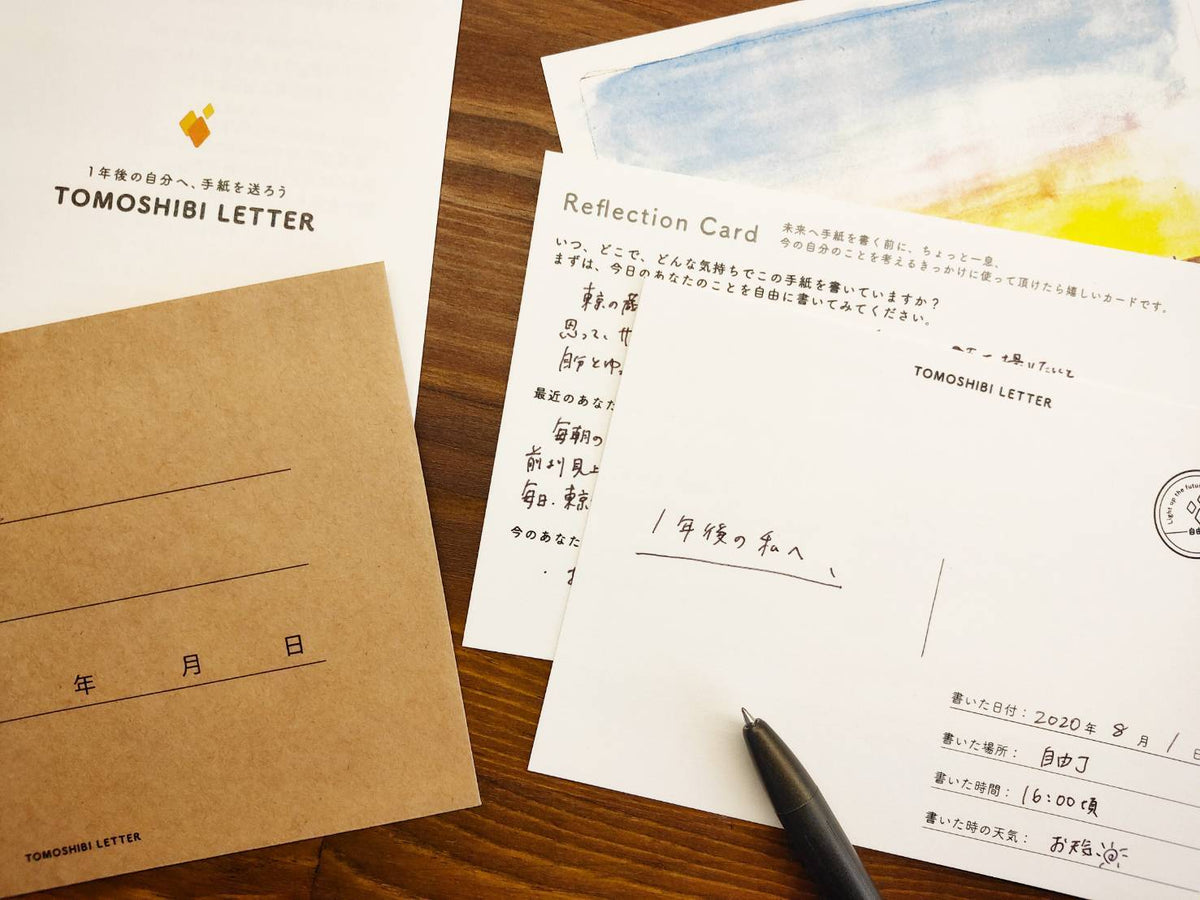 1年後の自分へ、手紙を送ろう
TOMOSHIBI LETTER
年 月 日
TOMOSHIBI LETTER
Reflection Card
未来へ手紙を書く前に、ちょっと一息、
今の自分のことを考えるきっかけに使って頂けたら嬉しいカードです。
いつ、どこで、どんな気持ちでこの手紙を書いていますか？
まずは、今日のあなたのことを自由に書いてみてください。
東京の蔵
思って、サ
自分とゆっ
最近のあなた
毎朝の
前より見上
毎日、東京
今のあなた
TOMOSHIBI LETTER
Light up the futu
自由
1年後の私へ、
書いた日付：2020年 8月 1日
書いた場所：自由丁
書いた時間：16:00頃
書いた時の天気：お天気